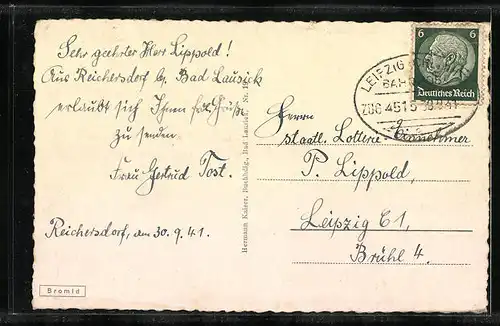 Sehr geehrter Herr Lippold!
Aus Reichersdorf b. Bad Lausick
erlaubt sich Ihnen Grüße
zu senden.
Frau Gertrud Tost.
Reichersdorf, am 30.9.41.
Bromid
Hermann Kaiser, Buchhdlg., Bad Lausick, Nr.
6 6
Deutsches Reich
LEIPZIG
BAHN
ZUG 4515 30.9.41
Herrn
staatl. Lotterie-
Einnehmer
P. Lippold,
Leipzig C 1,
Brühl 4.